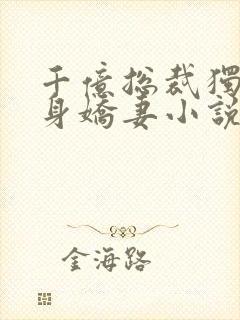 千億總裁獨
身嬌妻小説
金海路